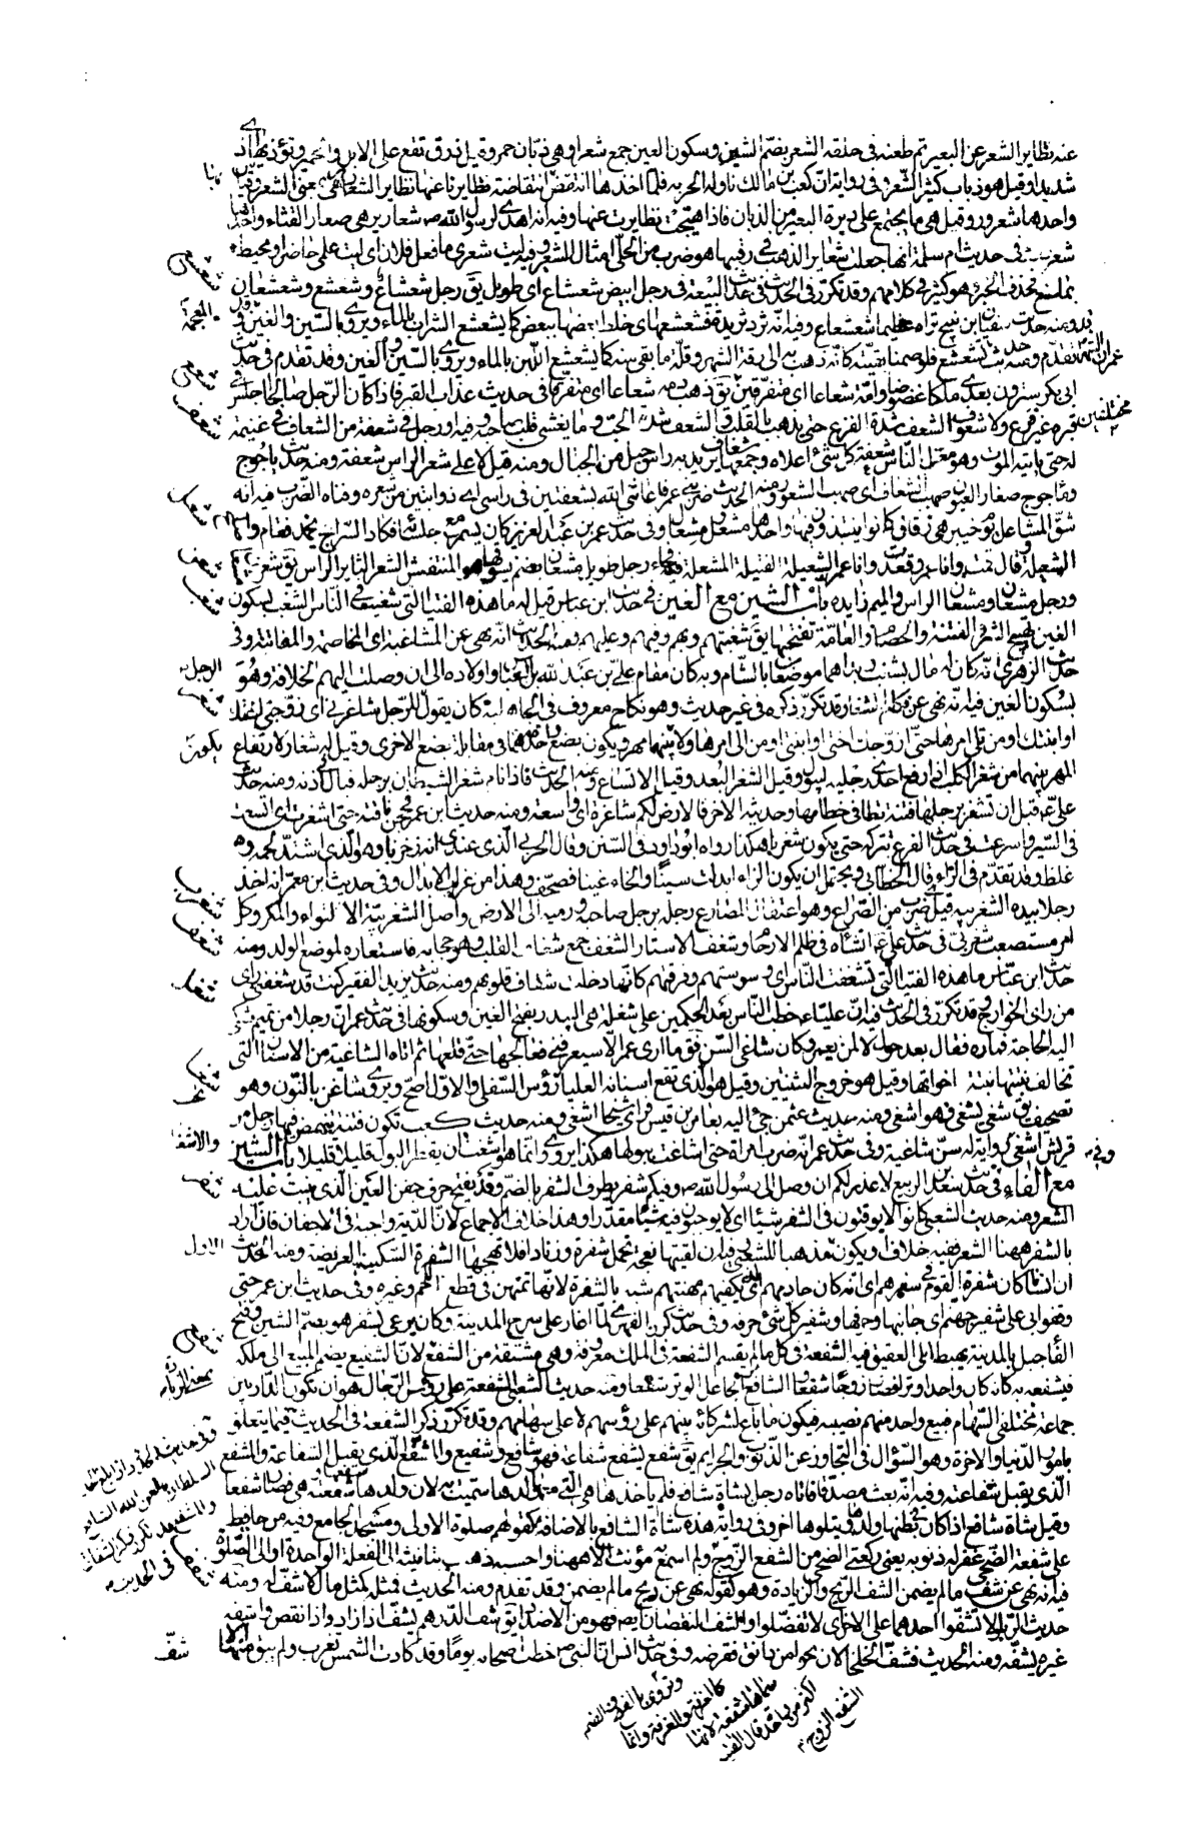 عنه تطاير الشعر عن البعير ثم طعنه في حلقه الشعر بضم الشين وسكون العين جمع شعراء وهي ذبان حمر وقيل زرق تقع على الابل والحمير وتؤذيها اذى
شديدا وقيل هو ذباب كثير الشعر وفي رواية ان كعب بن مالك ناوله الحربة فلما اخذها انتفض بها انتفاضة تطايرنا عنها تطاير الشعارير هي بمعنى الشعر وقياس
واحدها شعرور وقيل هي ما يجتمع على دبرة البعير من الذبان فاذا هيجت تطايرت عنها وفيه انه اهدي لرسول الله ص شعارير هي صغار القثاء واحدها
شعرور في حديث ام سلمة انها جعلت شعاير الذهب في رقبتها هو ضرب من الحلي امثال الشعير وفيه ليت شعري ما فعل فلان اي ليت علمي حاضر او محيط
بما صنع فحذف الخبر وهو كثير في كلامهم وقد تكرر في الحديث في حديث البيعة فجاء رجل ابيض شعشاع اي طويل يق رجل شعشاع وشعشع وشعشعان
ومنه حديث سفيان بن نبيح تراه عظيما شعشعا وفيه انه ثرد ثريدة فشعشعها اي خلط بعضها ببعض كما يشعشع الشراب بالماء ويروى بالسين والغين
تقدم ومنه حديث عمر ان الشهر قد تشعشع فلو صمنا بقيته كانه ذهب به الى رقة الشهر وقلة ما بقي منه كما يشعشع اللبن بالماء ويروى بالسين والعين وقد تقدم في حديث
ابي بكر سترون بعدي ملكا عضوضا وامة شعاعا اي متفرقين يق ذهب دمه شعاعا اي متفرقا في حديث عذاب القبر فاذا كان الرجل صالحا جلس في
قبره غير فزع ولا مشعوف الشعف شدة الفزع حتى يذهب بالقلب والشعف شدة الحب وما يغشى قلب صاحبه وفيه او رجل في شعفة من الشعاف في غنيمة
له حتى ياتيه الموت وهو معتزل الناس شعفة كل شئ اعلاه وجمعها شعاف يريد به راس جبل من الجبال ومنه قيل لاعلى شعر الراس شعفة ومنه حديث ياجوج
وماجوج صغار العيون صهب الشعاف اي صهب الشعور ومنه الحديث ضربني عمر فاغاثني الله بشعفتين في راسي اي ذوابتين من شعره وقتاه الضرب فيه انه
شق المشاعل يوم خيبر هي زقاق كانوا ينتبذون فيها واحدها مشعل ومشعال وفي حديث عمر بن عبد العزيز كان يسمر مع جلسائه فكاد السراج يخمد فقام واصلح
الشعيلة وقال قمت وانا عمر وقعدت وانا عمر الشعيلة الفتيلة المشعلة فجاء رجل طويل مشعان بغنم يسوقها هو المنتفش الشعر الثاير الراس يق شعر مشعان
ورجل مشعان ومشعان الراس والميم زايدة باب الشين مع الغين في حديث ابن عباس قيل له ما هذه الفتيا التي شغبت في الناس الشغب بسكون
الغين تهييج الشر والفتنة والخصام والعامة تفتحها يق شغبتهم وبهم وفيهم وعليهم ومنه الحديث انه نهى عن المشاغبة اي المخاصمة والمفاتنة وفي
حديث الزهري انه كان له مال بشغب وبدا هما موضعان بالشام وبه كان مقام علي بن عبد الله بن العباس واولاده الى ان وصلت اليهم الخلافة وهو
بسكون الغين فيه انه نهى عن نكاح الشغار قد تكرر ذكره في غير حديث وهو نكاح معروف في الجاهلية كان يقول الرجل للرجل شاغرني اي زوجني اختك
او ابنتك او من تلي امرها حتى ازوجك اختي او ابنتي او من الي امرها ولا يكون بينهما مهر ويكون بضع كل واحدة منهما في مقابلة بضع الاخرى وقيل له شغار لارتفاع
المهر بينهما من شغر الكلب اذا رفع احدى رجليه ليبول وقيل الشغر البعد وقيل الاتساع ومنه الحديث فاذا نام شغر الشيطان برجله فبال في اذنه ومنه حديث
علي ع قبل ان تشغر برجلها فتنة تطا في خطامها وحديثه الاخر فالارض لكم شاغرة اي واسعة ومنه حديث ابن عمر فحجن ناقته حتى اشغرت اي اتسعت
في السير واسرعت في حديث الفرع تتركه حتى يكون شغزبا هكذا رواه ابو داود في السنن وقال الحربي الذي عندي انه زخزبا وهو الذي اشتد لحمه و
غلظ وقد تقدم في الزاء قال الخطابي ويحتمل ان يكون الزاء ابدلت سينا والخاء غينا فصحف وهذا من غرايب الابدال وفي حديث ابن معمر انه اخذ
رجلا بيده الشغزبية قيل ضرب من الصراع وهو اعتقال المصارع رجله برجل صاحبه ورميه الى الارض واصل الشغزبية الالتواء والمكر وكل
امر مستصعب شغزبي في حديث علي ع انشأه في ظلم الارحام وشغف الاستار الشغف جمع شغاف القلب وهو حجابه فاستعاره لموضع الولد ومنه
حديث ابن عباس ما هذه الفتيا التي تشغفت الناس اي وسوستهم وفرقتهم كانها دخلت شغاف قلوبهم ومنه حديث يزيد الفقير كنت قد شغفني راي
من راي الخوارج وقد تكرر في الحديث فيه ان عليا ع خطب الناس بعد الحكمين على شغلة هي البيدر بفتح الغين وسكونها في حديث عمر ان رجلا من تميم شكى
اليه الحاجة فماره فقال بعد حول لالمن بعمر وكان شاغي السن فقال ما ارى عمر الا سيعرفني فعالجها حتى قلعها ثم اتاه الشاغية من الاسنان التي
تخالف نبتتها نبتة اخواتها وقيل هو خروج الثنيتين وقيل هو الذي تقع اسنانه العليا رؤس السفلى والاول اصح ويروى شاغن بالنون وهو
تصحيف يق شغي يشغى فهو اشغى ومنه حديث عثمن جئ اليه بعامر بن قيس فراى شيخا اشغى ومنه حديث كعب تكون فتنة ينهض فيها رجل من
قريش اشغى وفي رواية له سن شاغية وفي حديث عمر انه ضرب امراة حتى اشاغت ببولها هكذا يروى وانما هو اشغت ان يقطر البول قليلا قليلا باب الشين
مع الفاء في حديث سعد بن الربيع لا عذر لكم ان وصل الى رسول الله ص وفيكم شفر يطرف الشفر بالضم وقد يفتح حرف جفن العين الذي ينبت عليه
الشعر ومنه حديث الشعبي كانوا لا يوقتون في الشفر شيئا اي لا يوجبون فيه شيئا مقدرا وهذا خلاف الاجماع لان الدية واجبة في الاجفان فان اراد
بالشفر ههنا الشعر ففيه خلاف او يكون مذهبا للشعبي وفيه ان لقيتها نعجة تحمل شفرة وزنادا فلا تهجها الشفرة السكين العريضة ومنه الحديث
ان انسا كان شفرة القوم في سفرهم اي انه كان خادمهم الذي يكفيهم مهنتهم شبه بالشفرة لانها تمتهن في قطع اللحم وغيره وفي حديث ابن عمر حتى
وقفوا بي على شفير جهنم اي جانبها وحرفها وشفير كل شئ حرفه وفي حديث كرز الفهري لما اغار على سرح المدينة وكان يرعى بشفر هو بضم الشين وفتح
الفاء جبل بالمدينة يهبط الى العقيق فيه الشفعة في كل ما لم يقسم الشفعة في الملك معروفة وهي مشتقة من الشفع لان الشفيع يضم المبيع الى ملكه
فيشفعه به كانه كان واحدا وترا فصار زوجا شفعا والشافع الجاعل الوتر شفعا ومنه حديث الشعبي الشفعة على رؤس الرجال هو ان تكون الدار بين
جماعة مختلفي السهام فيبيع واحد منهم نصيبه فيكون ما باع لشركائه بينهم على رؤسهم لا على سهامهم وقد تكرر ذكر الشفعة في الحديث فيما يتعلق
بامور الدنيا والاخرة وهو السؤال في التجاوز عن الذنوب والجرايم يق شفع يشفع شفاعة فهو شافع وشفيع والمشفع الذي يقبل الشفاعة والمشفع
الذي يقبل شفاعته وفيه انه بعث مصدقا فاتاه رجل بشاة شافع فلم ياخذها هي التي معها ولدها سميت به لان ولدها شفعها وشفعته هي فصارا شفعا
وقيل شاة شافع اذا كان في بطنها ولدها ويتلوها اخر وفي رواية هذه شاة الشافع بالاضافة كقولهم صلوة الاولى ومسجد الجامع وفيه من حافظ
على شفعة الضحى غفر له ذنوبه يعني ركعتي الضحى من الشفع الزوج ولم اسمع به مؤنثا الا ههنا واحسبه ذهب بتانيثه الى الفعلة الواحدة او الى الصلوة
فيه انه نهى عن شف ما لم يضمن الشف الربح والزيادة وهو كقوله نهى عن ربح ما لم يضمن وقد تقدم ومنه الحديث فمثله كمثل ما لا شف له ومنه
حديث الربا ولا تشفوا احدهما على الاخر اي لا تفضلوا والشف النقصان ايضا فهو من الاضداد يق شف الدرهم يشف اذا زاد واذا نقص واشفه
غيره يشفه ومنه الحديث فشف الخلخالان نحوا من دانق فقرضه وفي حديث انس ان النبي ص خطب اصحابه يوما وقد كادت الشمس تغرب ولم يبق منها الا
شف
شعشع
شعع
شعف
شعل
شعن
شغب
شغر
شغزب
شغف
شغل
شغا
شفر
شفع
شفف
الشفع الزوج